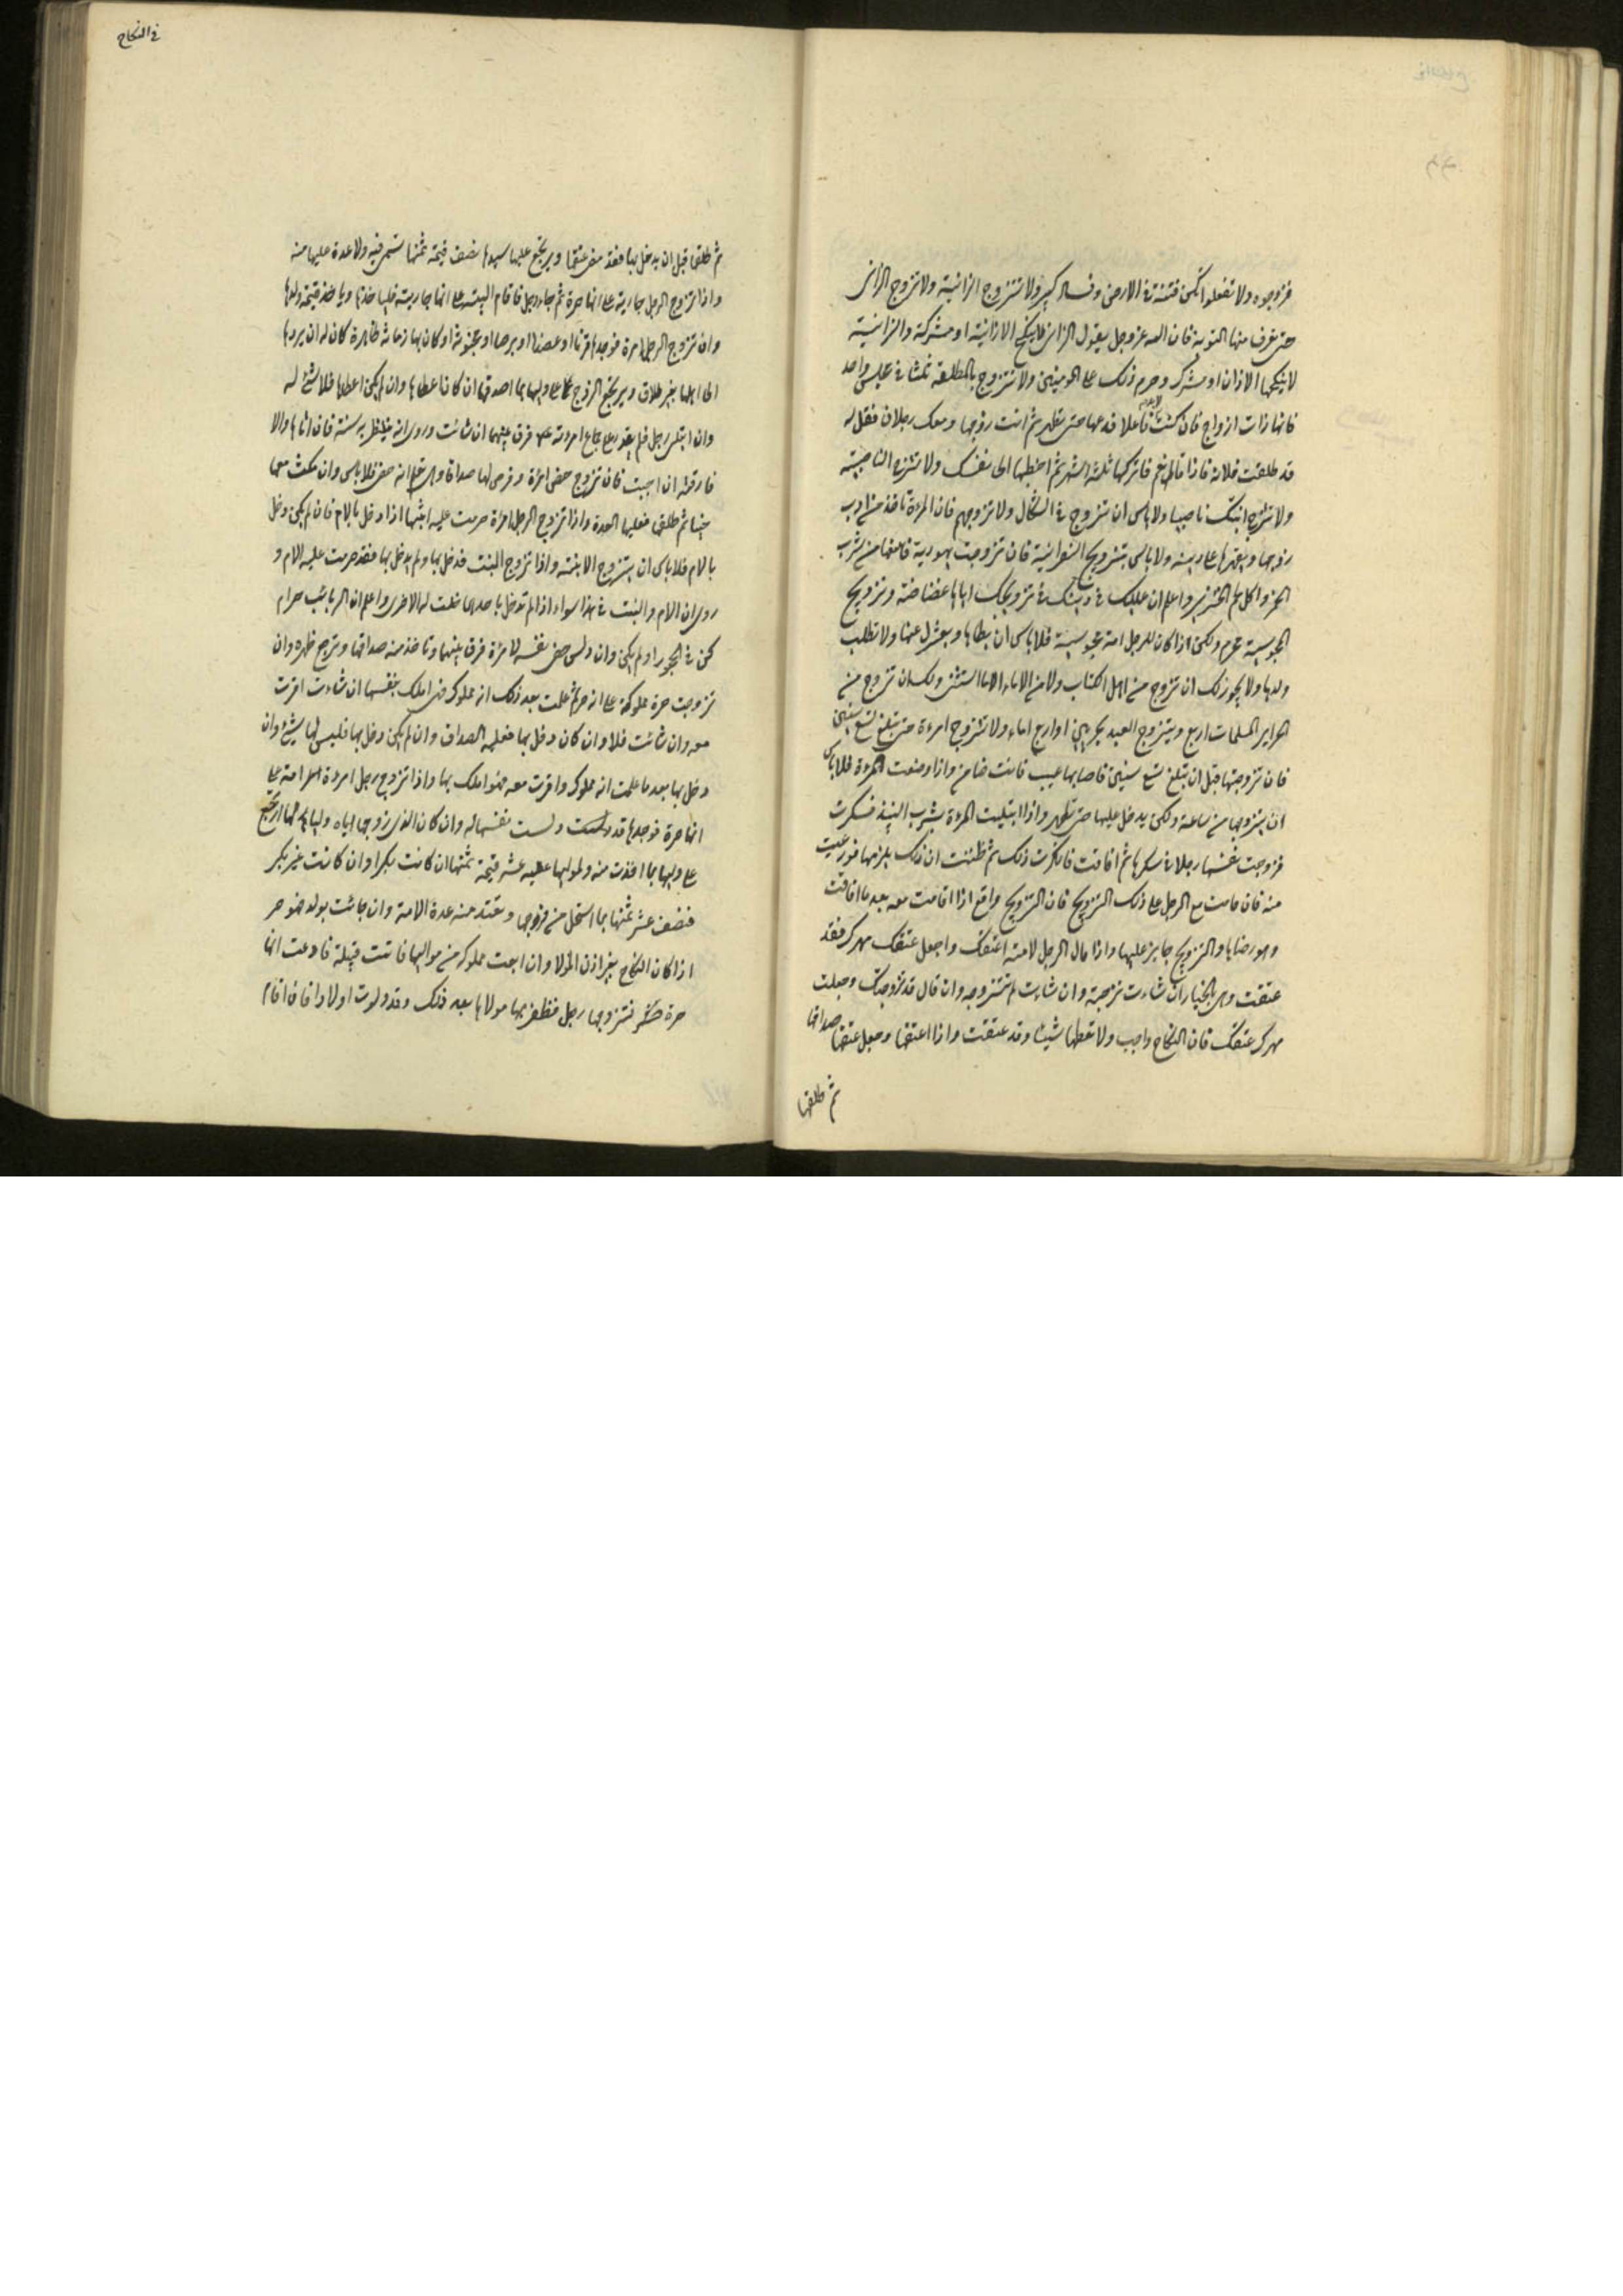 فزوجوه ولا تفعلوا تكن فتنة في الارض وفساد كبير ولا تتزوج الزانية ولا تزوج الزاني
حتى تعرف منها التوبة فان الله عز وجل يقول الزاني لا ينكح الا زانية او مشركة والزانية
لا ينكحها الا زان او مشرك وحرم ذلك على المومنين ولا تتزوج بالمطلقة ثلثا في مجلس واحد
فانها ذات ازواج فان كنت لابد فاعلا فدعها حتى تطهر ثم ائت زوجها ومعك رجلان فقل له
قد طلقت فلانة فاذا قال نعم فاتركها ثلثة اشهر ثم اخطبها الى نفسك ولا تتزوج الناصبية
ولا تزوج ابنتك ناصبيا ولا باس ان تتزوج في الشكاك ولا تزوجهم فان المرءة تاخذ من ادب
زوجها ويقهرها على دينه ولا باس بتزويج النصرانية فان تزوجت يهودية فامنعها من شرب
الخمر واكل لحم الخنزير واعلم ان عليك في دينك في تزويجك اياها غضاضة وتزويج
المجوسية محرم ولكن اذا كان للرجل امة مجوسية فلا باس ان يطاها ويعزل عنها ولا تطلب
ولدها ولا يجوز لك ان تزوج من اهل الكتاب ولا من الاماء الا اثنتين ولك ان تزوج من
الحراير المسلمات اربع ويتزوج العبد بحرتين او اربع اماء ولا تتزوج امرءة حتى تبلغ تسع سنين
فان تزوجتها قبل ان تبلغ تسع سنين فاصابها عيب فانت ضامن واذا وضعت المرءة فلا باس
ان يتزوجها من ساعته ولكن لا يدخل عليها حتى تطهر واذا ابتليت المرءة بشرب النبيذ فسكرت
فزوجت نفسها رجلا في سكرها ثم افاقت فانكرت ذلك ثم ظنت ان ذلك يلزمها فورعت
منه فاقامت مع الرجل على ذلك التزويج فان التزويج واقع اذا اقامت معه بعد ما افاقت
وهو رضاها والتزويج جايز عليها واذا قال الرجل لامته اعتقك واجعل عتقك مهرك فقد
عتقت وهي بالخيار ان شاءت تزوجته وان شاءت لم تتزوجه وان قال قد تزوجتك وجعلت
مهرك عتقك فان النكاح واجب ولا تعطها شيئا وقد عتقت واذا اعتقها وجعل عتقها صداقها
ثم طلقها
في النكاح
ثم طلقها قبل ان يدخل بها فقد مضى عتقها ويرتجع عليها سيدها بنصف قيمة ثمنها تسعى فيه ولا عدة عليها منه
واذا تزوج الرجل جارية على انها حرة ثم جاء رجل فاقام البينة على انها جاريته فلياخذها وياخذ قيمة ولدها
وان تزوج الرجل امرة فوجدها قرنا او عفلا او برصا او مجنونة او كان بها زمانة ظاهرة كان له ان يردها
الى اهلها بغير طلاق ويرتجع الزوج على وليها بما اصدقها ان كان اعطاها وان لم يكن اعطاها فلا شئ له
وان ابتلى رجل فلم يقدر على جماع امرءته فرق بينهما ان شائت وروي انه ينتظر به سنة فان اتاها والا
فارقته ان احبت فان تزوج خصي امرءة وفرض لها صداقا وهي تعلم انه خصي فلا باس وان مكث معها
حينا ثم طلقها فعليها العدة واذا تزوج الرجل امرءة حرمت عليه ابنتها اذا دخل بالام فان لم يكن دخل
بالام فلا باس ان يتزوج الابنة واذا تزوج البنت فدخل بها او لم يدخل بها فقد حرمت عليه الام و
روي ان الام والبنت في هذا سواء اذا لم تدخل باحديهما حلت له الاخرى واعلم ان الربائب حرام
كن في الحجور او لم يكن وان دلس خصي نفسه لامرءة فرق بينهما وتاخذ منه صداقها ويوجع ظهره وان
تزوجت حرة مملوكا على انه حر ثم علمت بعد ذلك انه مملوك فهي املك بنفسها ان شاءت اقرت
معه وان شائت فلا وان كان دخل بها فعليه الصداق وان لم يكن دخل بها فليس لها شئ وان
دخل بها بعد ما علمت انه مملوك واقرت معه فهو املك بها واذا تزوج رجل امرءة امة على
انها حرة فوجدها قد دلست نفسها له وان كان الذي زوجها اياه وليا لها ارتجع
على وليها بما اخذت منه ولمواليها عليه عشر قيمة ثمنها ان كانت بكرا وان كانت غير بكر
فنصف عشر ثمنها بما استحل من فرجها وتعتد منه عدة الامة وان جائت بولد فهو حر
اذا كان النكاح بغير اذن المولا وان ابقت مملوكة من مواليها فاتت قبيلة فادعت انها
حرة فتزوجها رجل فظفر بها مولاها بعد ذلك وقد ولدت اولادا فان اقام